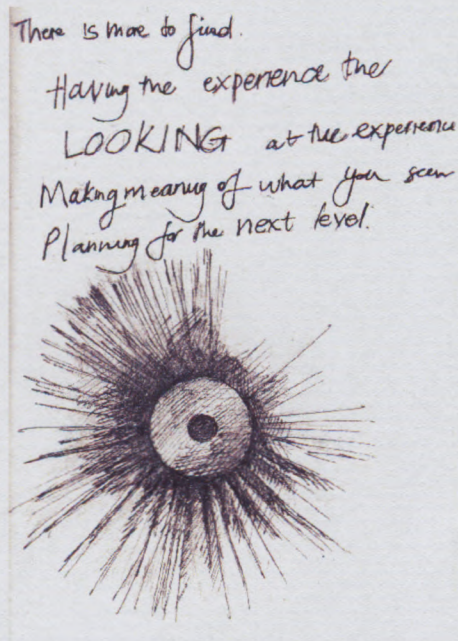 There is more to find.
Having the experience the
LOOKING at the experience
Making meaning of what you seen
Planning for the next level.